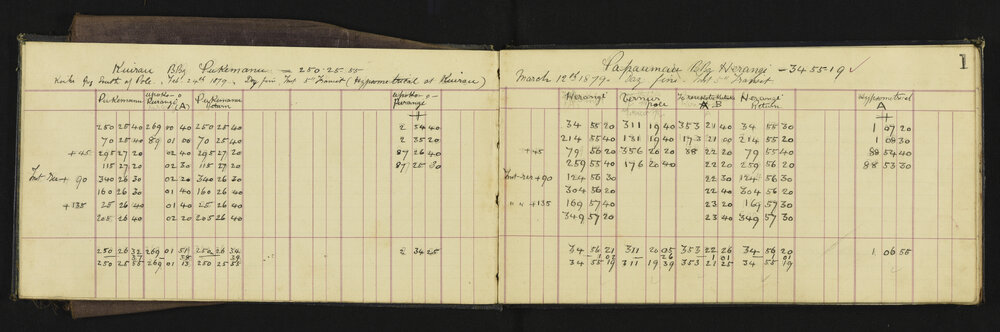 Kuirau Brg Pukemanu = 250·25·55
South of Pole, Feb 24th 1879, Day fine Inst 5" Transit (Hypsometrical at Kuirau)
Pukemanu Pukemanu Return
250 25 40 269 00 40 250 25 40 2 34 40
70 25 40 89 01 00 70 25 40 2 35 20
+45 295 27 20 02 40 295 27 20 87 26 40
115 27 20 02 30 115 27 20 87 25 30
+90 340 26 30 02 20 340 26 30
160 26 30 01 40 160 26 30
+135 25 26 40 01 40 25 26 40
205 26 40 02 20 205 26 40
250 26 32 269 01 250 26 34 2 34 25
250 25 55 269 01 13 250 25 55
1
Brg Herangi = 34 55·19 ✓
March 12th 1879. Day fine Inst 5" Transit
Herangi pole A B Herangi Return Hypsometrical A
34 55 20 311 19 40 353 21 40 34 55 30 1 07 20
214 55 40 131 19 40 173 21 00 214 55 20 1 08 30
+45 79 56 20 356 20 20 88 22 20 79 55 40 88 54 40
259 55 40 176 20 40 22 20 259 56 20 88 53 30
+90 124 56 30 22 30 124 56 30
304 56 20 22 40 304 56 20
" " +135 169 57 40 23 20 169 57 30
349 57 20 23 40 349 57 30
34 56 21 311 20 05 353 22 26 34 56 20 1 06 55
1 02 26 1 01 1 01
34 55 19 311 19 39 353 21 25 34 55 19